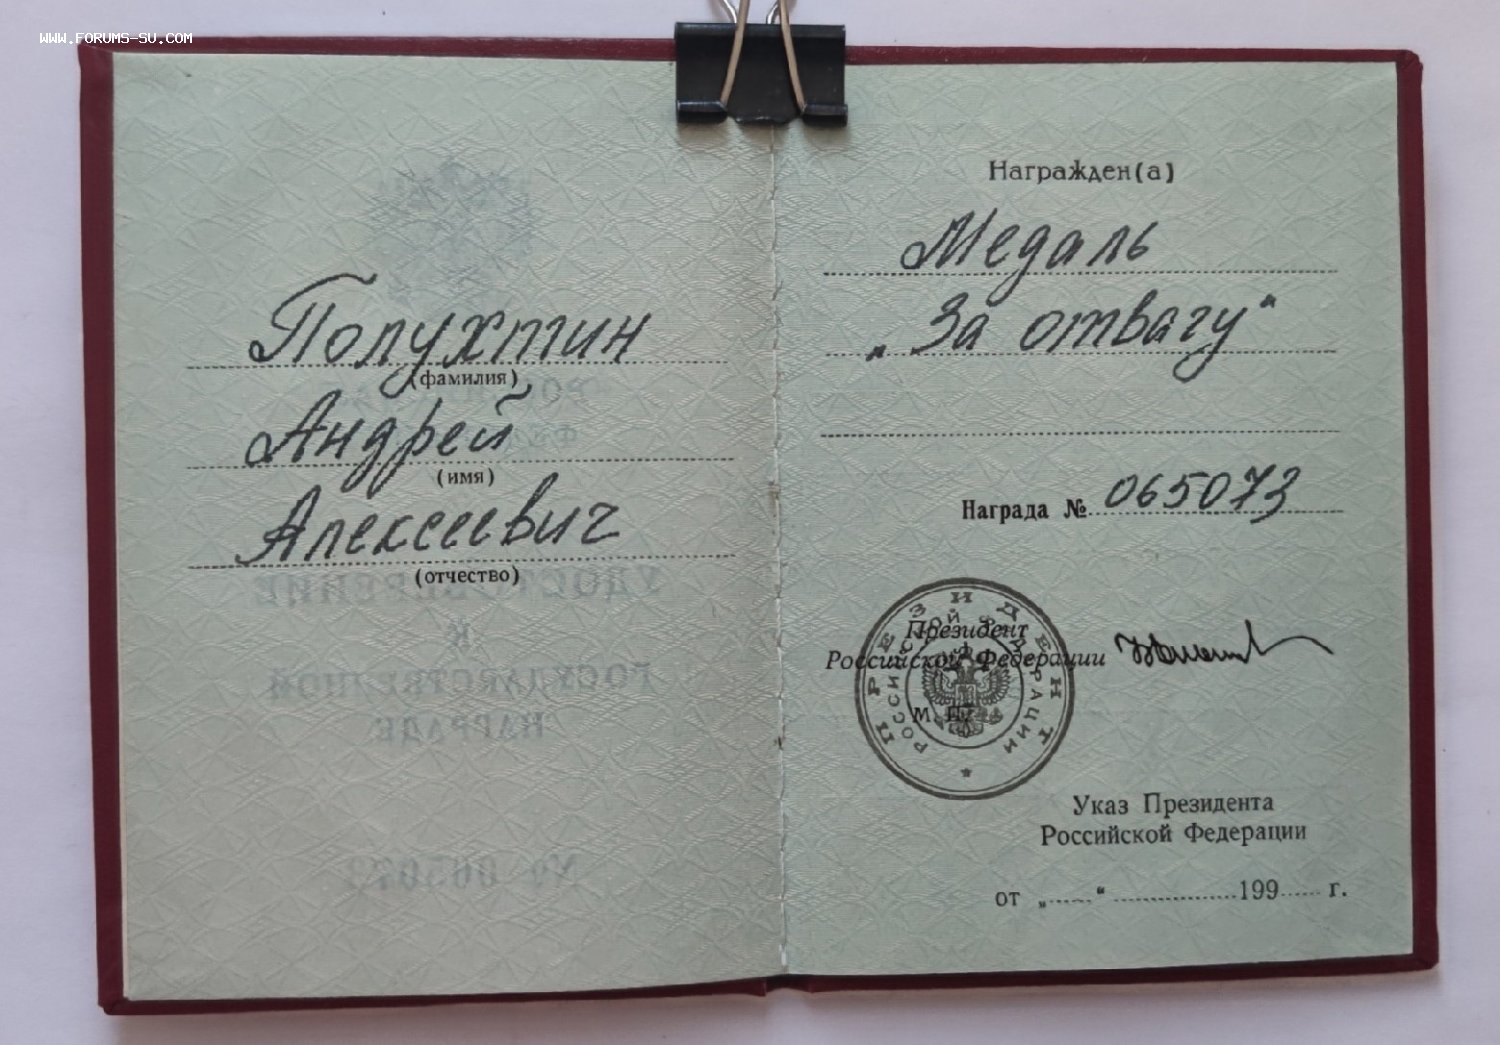 WWW.FORUMS-SU.COM
Полухтин
(фамилия)
Андрей
(имя)
Алексеевич
(отчество)
УДОСТОВЕРЕНИЕ
К
ГОСУДАРСТВЕННОЙ
НАГРАДЕ
Награжден(а)
Медаль
„За отвагу“
Награда № 065073
ПРЕЗИДЕНТ
РОССИЙСКОЙ ФЕДЕРАЦИИ
Президент
Российской Федерации
М. П.
Указ Президента
Российской Федерации
от „......“ ................199...... г.